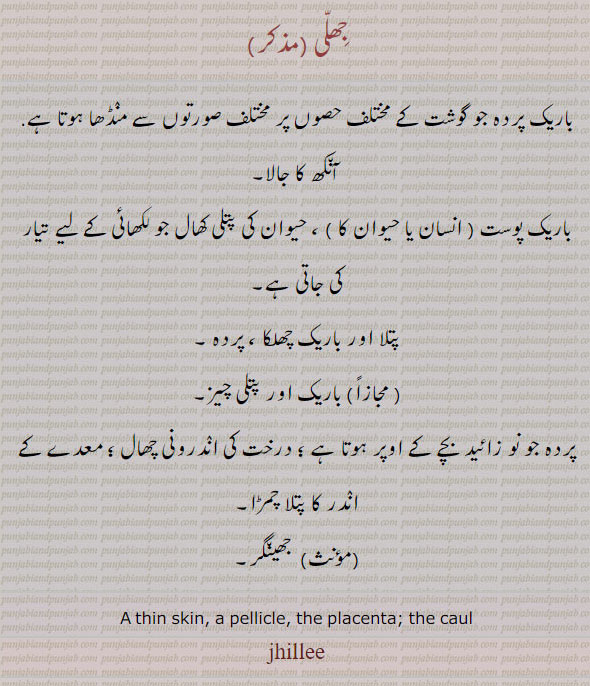 جِھلّی (مذکر)
باریک پردہ جو گوشت کے مختلف حصوں پر مختلف صورتوں سے منْڈھا ہوتا ہے.
آنْکھ کا جالا۔
باریک پوست ( انسان یا حیوان کا ) ، حیوان کی پتلی کھال جو لکھائی کے لیے تیار
کی جاتی ہے۔
پتلا اور باریک چھلکا ، پردہ ۔
( مجازاً) باریک اور پتلی چیز۔
پردہ جو نو زائید بچے کے اوپر ہوتا ہے ؛ درخت کی انْدرونی چھال ؛ معدے کے
انْدر کا پتلا چمڑا۔
(مؤنث) جھینْگر ۔
A thin skin, a pellicle, the placenta; the caul
jhillee